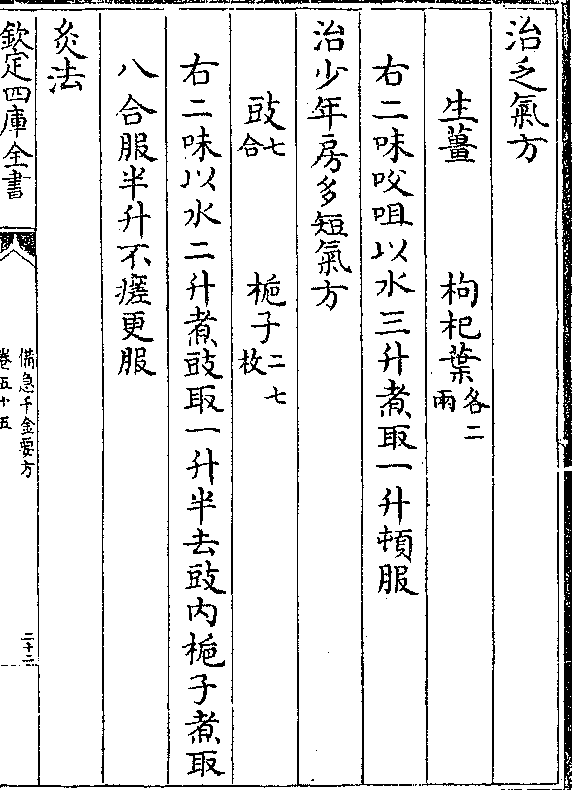 治乏氣方
生薑　枸杞葉各二兩
右二味㕮咀以水三升煮取一升頓服
治少年房多短氣方
豉七合　梔子二七枚
右二味以水二升煮豉取一升半去豉内梔子煮取
八合服半升不瘥更服
灸法
欽定四庫全書
備急千金要方
卷五十五